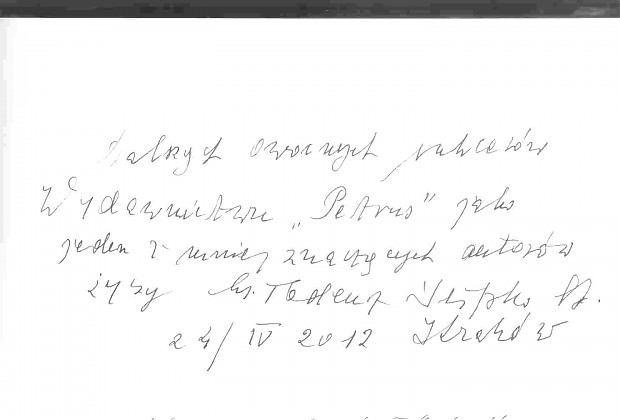 Dalszych owocnych sukcesów
Wydawnictwu „Petrus” jako
jeden z mniej znaczących autorów
życzy ks. Tadeusz Ślipko SJ.
24/IV 2012 Kraków